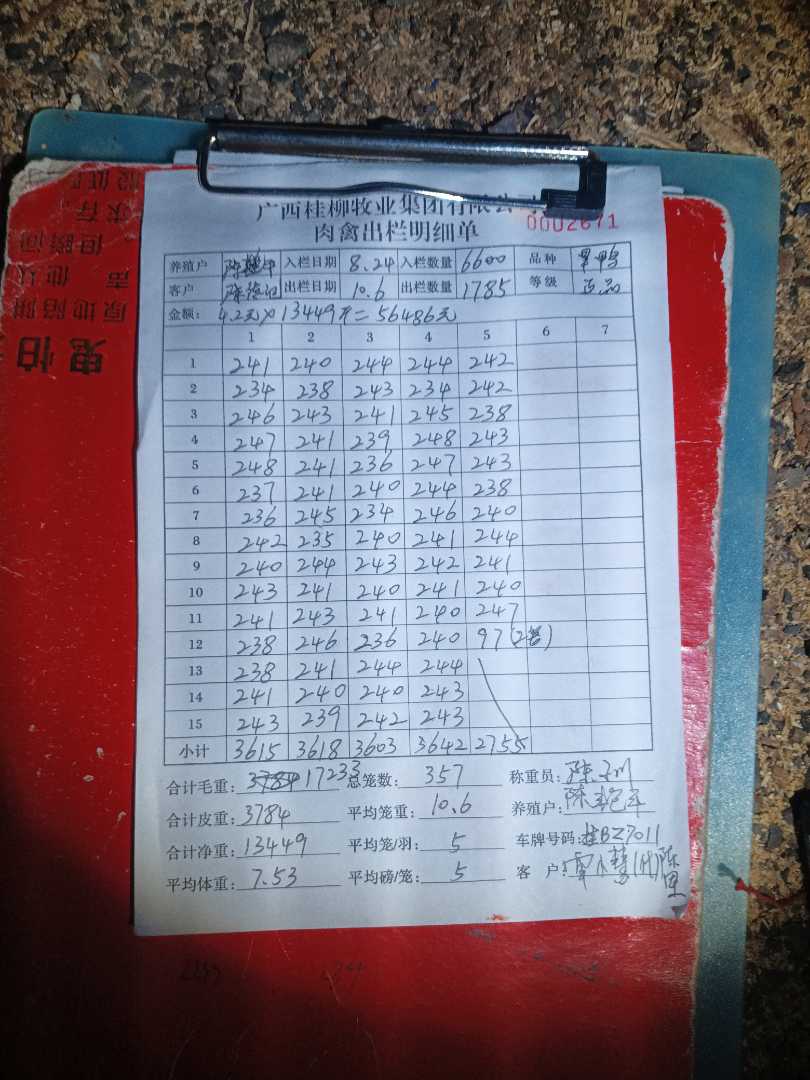 广西桂柳牧业集团有限公司
0002671
肉禽出栏明细单
养殖户 入栏日期 8.24 入栏数量 6600 品种
客户 出栏日期 10.6 出栏数量 1785 等级 正品
金额: 4.2元×13449斤=56486元
1 2 3 4 5 6 7
1 241 240 244 244 242
2 234 238 243 234 242
3 246 243 241 245 238
4 247 241 239 248 243
5 248 241 236 247 243
6 237 241 240 244 238
7 236 245 234 246 240
8 242 235 240 241 244
9 240 244 243 242 241
10 243 241 240 241 240
11 241 243 241 240 247
12 238 246 236 240 97(2笼)
13 238 241 244 244
14 241 240 240 243
15 243 239 242 243
小计 3615 3618 3603 3642 2755
合计毛重: 3784 17233 总笼数: 357 称重员:
合计皮重: 3784 平均笼重: 10.6 养殖户:
合计净重: 13449 平均笼/羽: 5 车牌号码: 桂BZ7011
平均体重: 7.53 平均磅/笼: 5 客 户:
鬼怕
原地陷阱